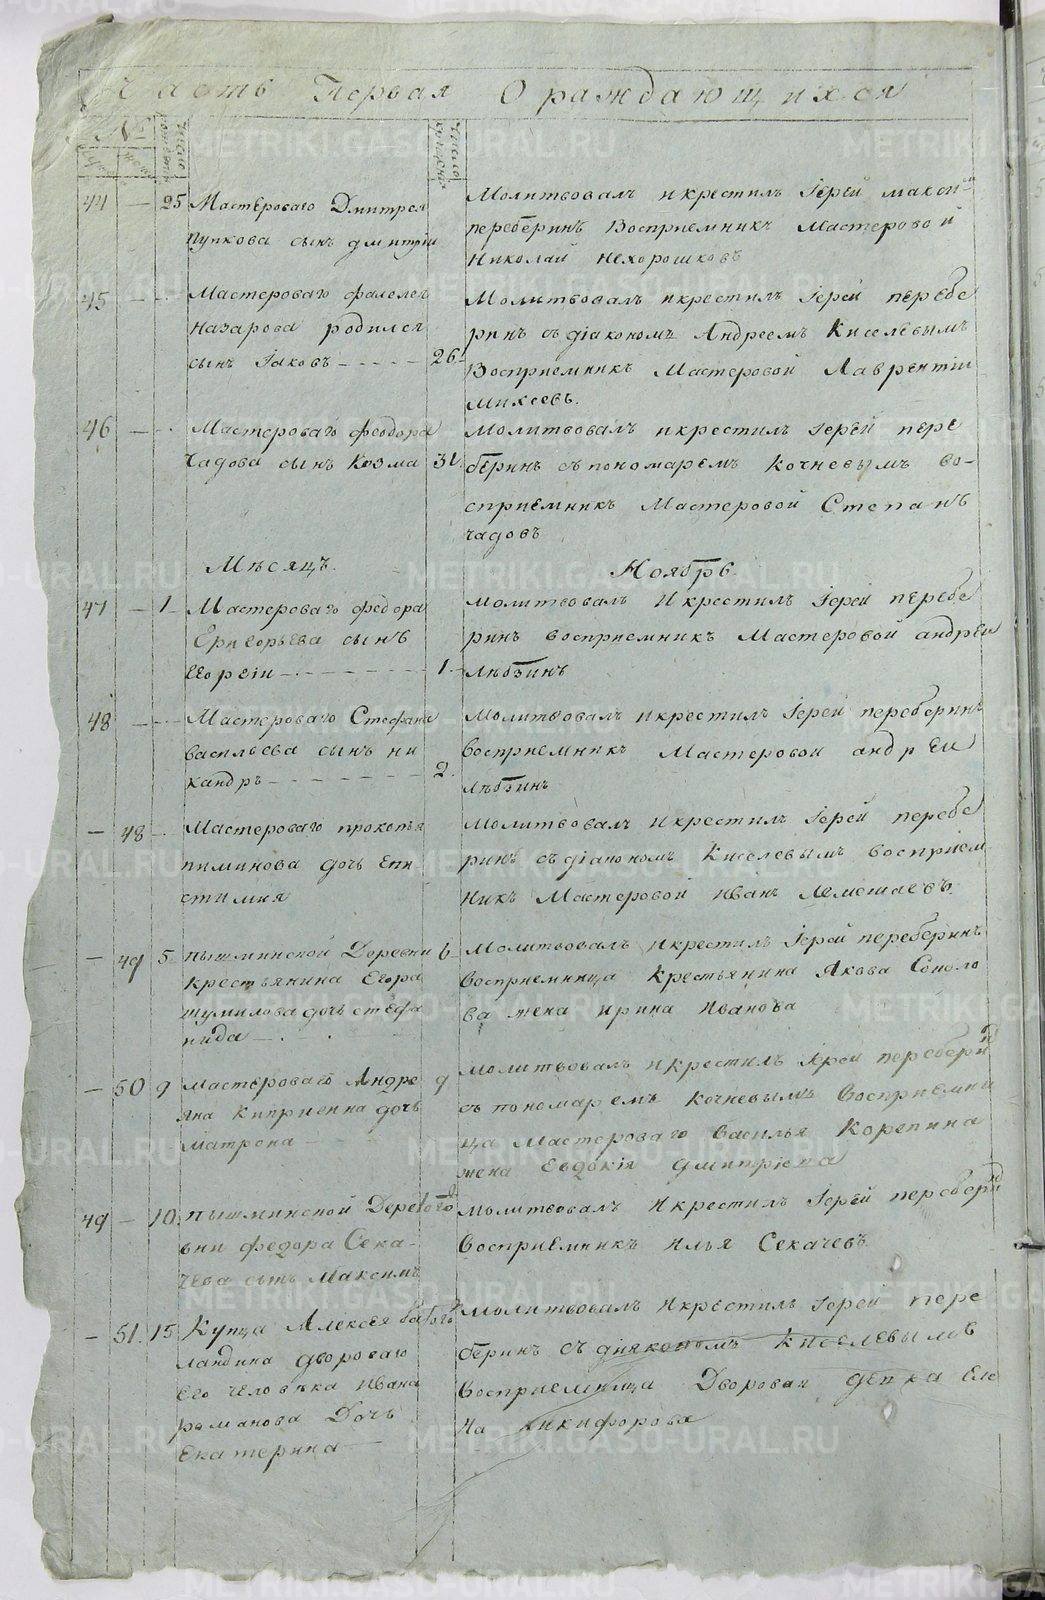 Часть Первая О раждающихся
№
44 — 25 Мастероваго Дмитрея
Пупкова сынъ дмитрій
Молитвовалъ икрестилъ Іерей макси
переберинъ Восприемникъ Мастеровой
Николай Нехорошковъ
45 — Мастероваго фалелея
Назарова родился
сынъ Іаковъ 26
Молитвовалъ икрестилъ Іерей перебе
ринъ съ діакономъ Андреемъ Киселевымъ
Восприемникъ Мастеровой Лаврентій
Михеевъ.
46 — Мастероваго феодора
Чадова сынъ Козма 31
Молитвовалъ икрестилъ Іерей пере
беринъ съ пономаремъ Кочневымъ во-
сприемникъ Мастеровой Степанъ
чадовъ
Мѣсяцъ Ноябрь
47 — 1 Мастероваго федора
Григорьева сынъ
Георгіи 1
молитвовалъ Икрестилъ Іерей перебе
ринъ восприемникъ Мастеровой андреи
48 — Мастероваго Стефана
васильева сынъ ни
кандръ 2
Молитвовалъ икрестилъ Іерей переберинъ
восприемникъ Мастеровои андреи
— 48 Мастероваго прокопья
пиминова дочь Епи
стимия
Молитвовалъ икрестилъ Іерей перебе
ринъ съ діакономъ Киселевымъ восприем
никъ Мастеровой Иванъ Лемешаевъ
— 49 5 пышминской Деревни 6
крестьянина Егора
шумилова дочь стефа
нида
Молитвовалъ икрестилъ Іерей переберинъ
восприемница крестьянина Якова Соколо
ва жена ирина Иванова
— 50 9 мастероваго Андре 9
яна Киприенна дочь
матрона
молитвовалъ икрестилъ Ірей переберинъ
съ пономаремъ Кочневымъ восприемни
ца Мастероваго василья Корепина
жена Евдокія дмитріева
49 — 10 пышминской Дере 10
вни федора Сека-
чева сынъ Максимъ
молитвовалъ Икрестилъ Іерей переберинъ
восприемникъ Илья Секачевъ
— 51 15 Купца Алексея ба
ландина двороваго
его человѣка Ивана
романова Дочь
Екатерина
Молитвовалъ Икрестилъ Іерей пере
беринъ съ диякономъ Киселевымъ
восприемница Дворован девка Еле
на никифорова